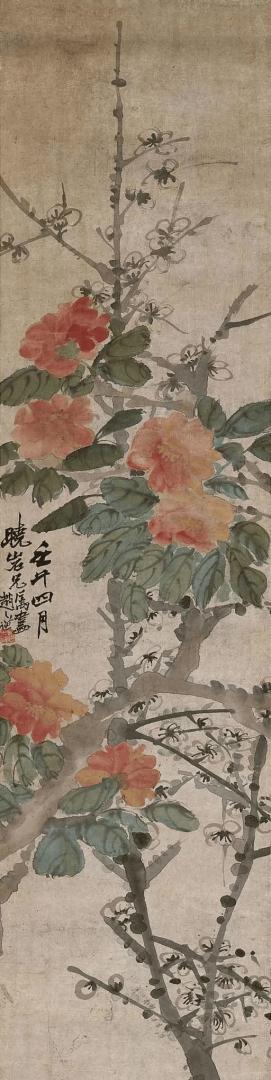 壬午四月
曉岩兄属畫
趙起